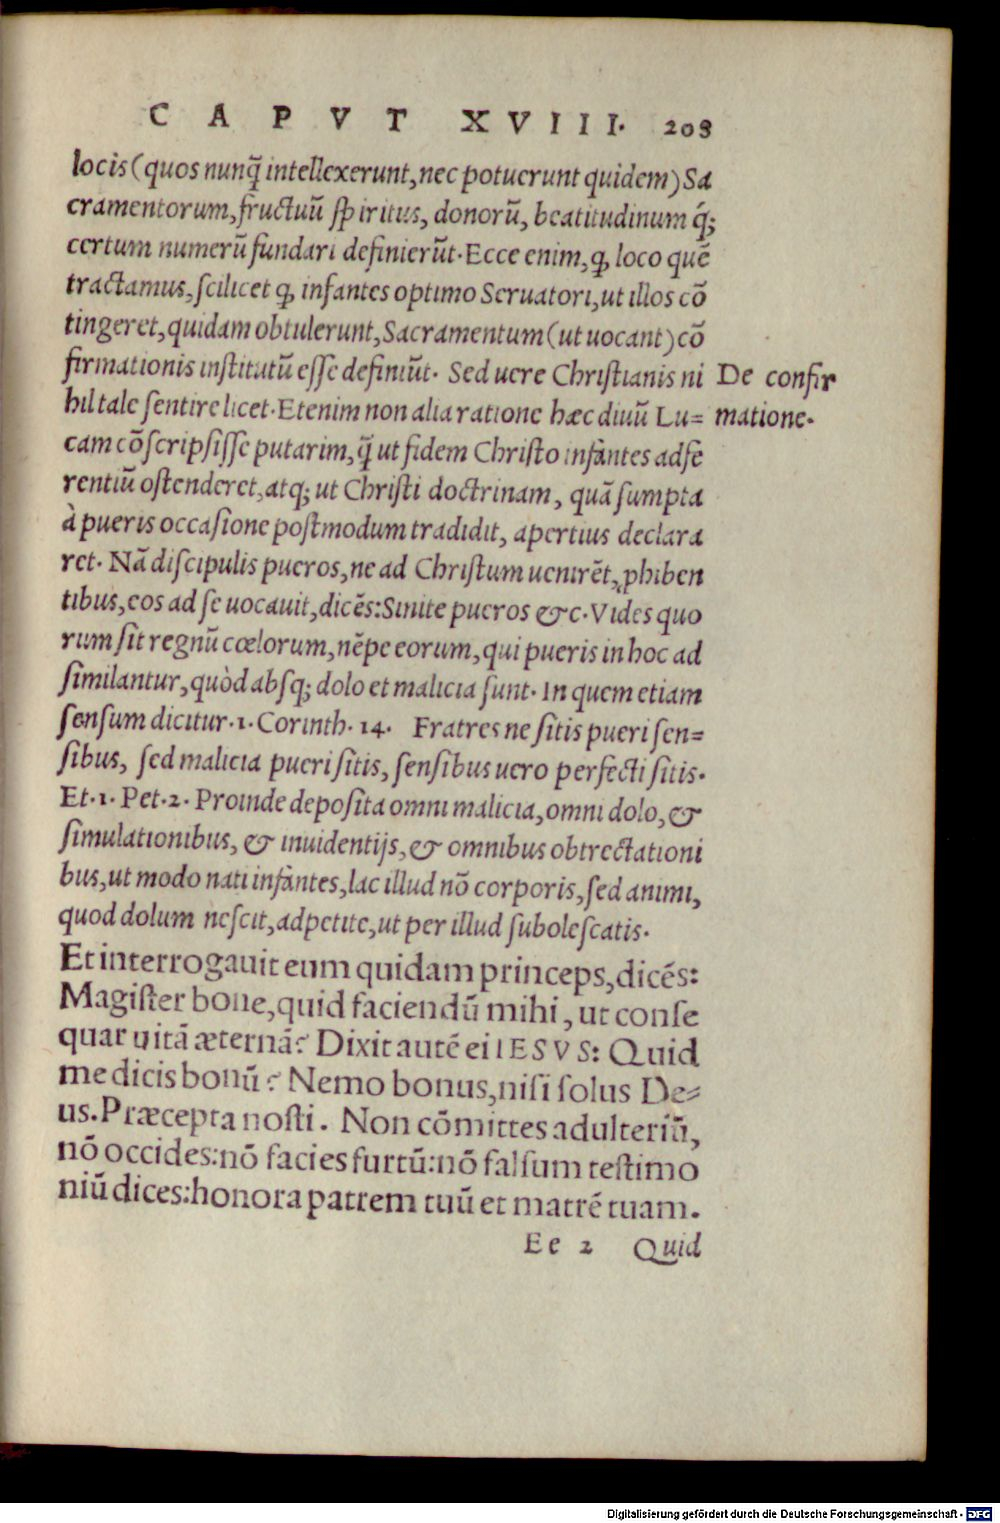 CAPVT XVIII. 208
locis (quos nunq̃ intellexerunt, nec potuerunt quidem) Sa
cramentorum, fructuũ spiritus, donorũ, beatitudinum q́;
certum numerũ fundari definierũt. Ecce enim, ꝙ loco quẽ
tractamus, scilicet ꝙ infantes optimo Seruatori, ut illos cõ
tingeret, quidam obtulerunt, Sacramentum (ut uocant) cõ
firmationis institutũ esse definiũt. Sed uere Christianis ni
De confir
hil tale sentire licet. Etenim non alia ratione hæc diuũ Lu=
matione.
cam cõscripsisse putarim, q̃ ut fidem Christo infantes adfe
rentiũ ostenderet, atq; ut Christi doctrinam, quã sumpta
à pueris occasione postmodum tradidit, apertius declara
ret. Nã discipulis pueros, ne ad Christum uenirẽt, ꝓhiben
tibus, eos ad se uocauit, dicẽs: Sinite pueros &c. Vides quo
rum sit regnũ cœlorum, nẽpe eorum, qui pueris in hoc ad
similantur, quòd absq; dolo et malicia sunt. In quem etiam
sensum dicitur .1. Corinth. 14. Fratres ne sitis pueri sen=
sibus, sed malicia pueri sitis, sensibus uero perfecti sitis.
Et .1. Pet. 2. Proinde deposita omni malicia, omni dolo, &
simulationibus, & inuidentijs, & omnibus obtrectationi
bus, ut modo nati infantes, lac illud nõ corporis, sed animi,
quod dolum nescit, adpetite, ut per illud subolescatis.
Et interrogauit eum quidam princeps, dicẽs:
Magister bone, quid faciendũ mihi, ut conse
quar uitã æternã? Dixit autẽ ei IESVS: Quid
me dicis bonũ? Nemo bonus, nisi solus De=
us. Præcepta nosti. Non cõmittes adulteriũ,
nõ occides: nõ facies furtũ: nõ falsum testimo
niũ dices: honora patrem tuũ et matrẽ tuam.
Ee 2 Quid
Digitalisierung gefördert durch die Deutsche Forschungsgemeinschaft - DFG